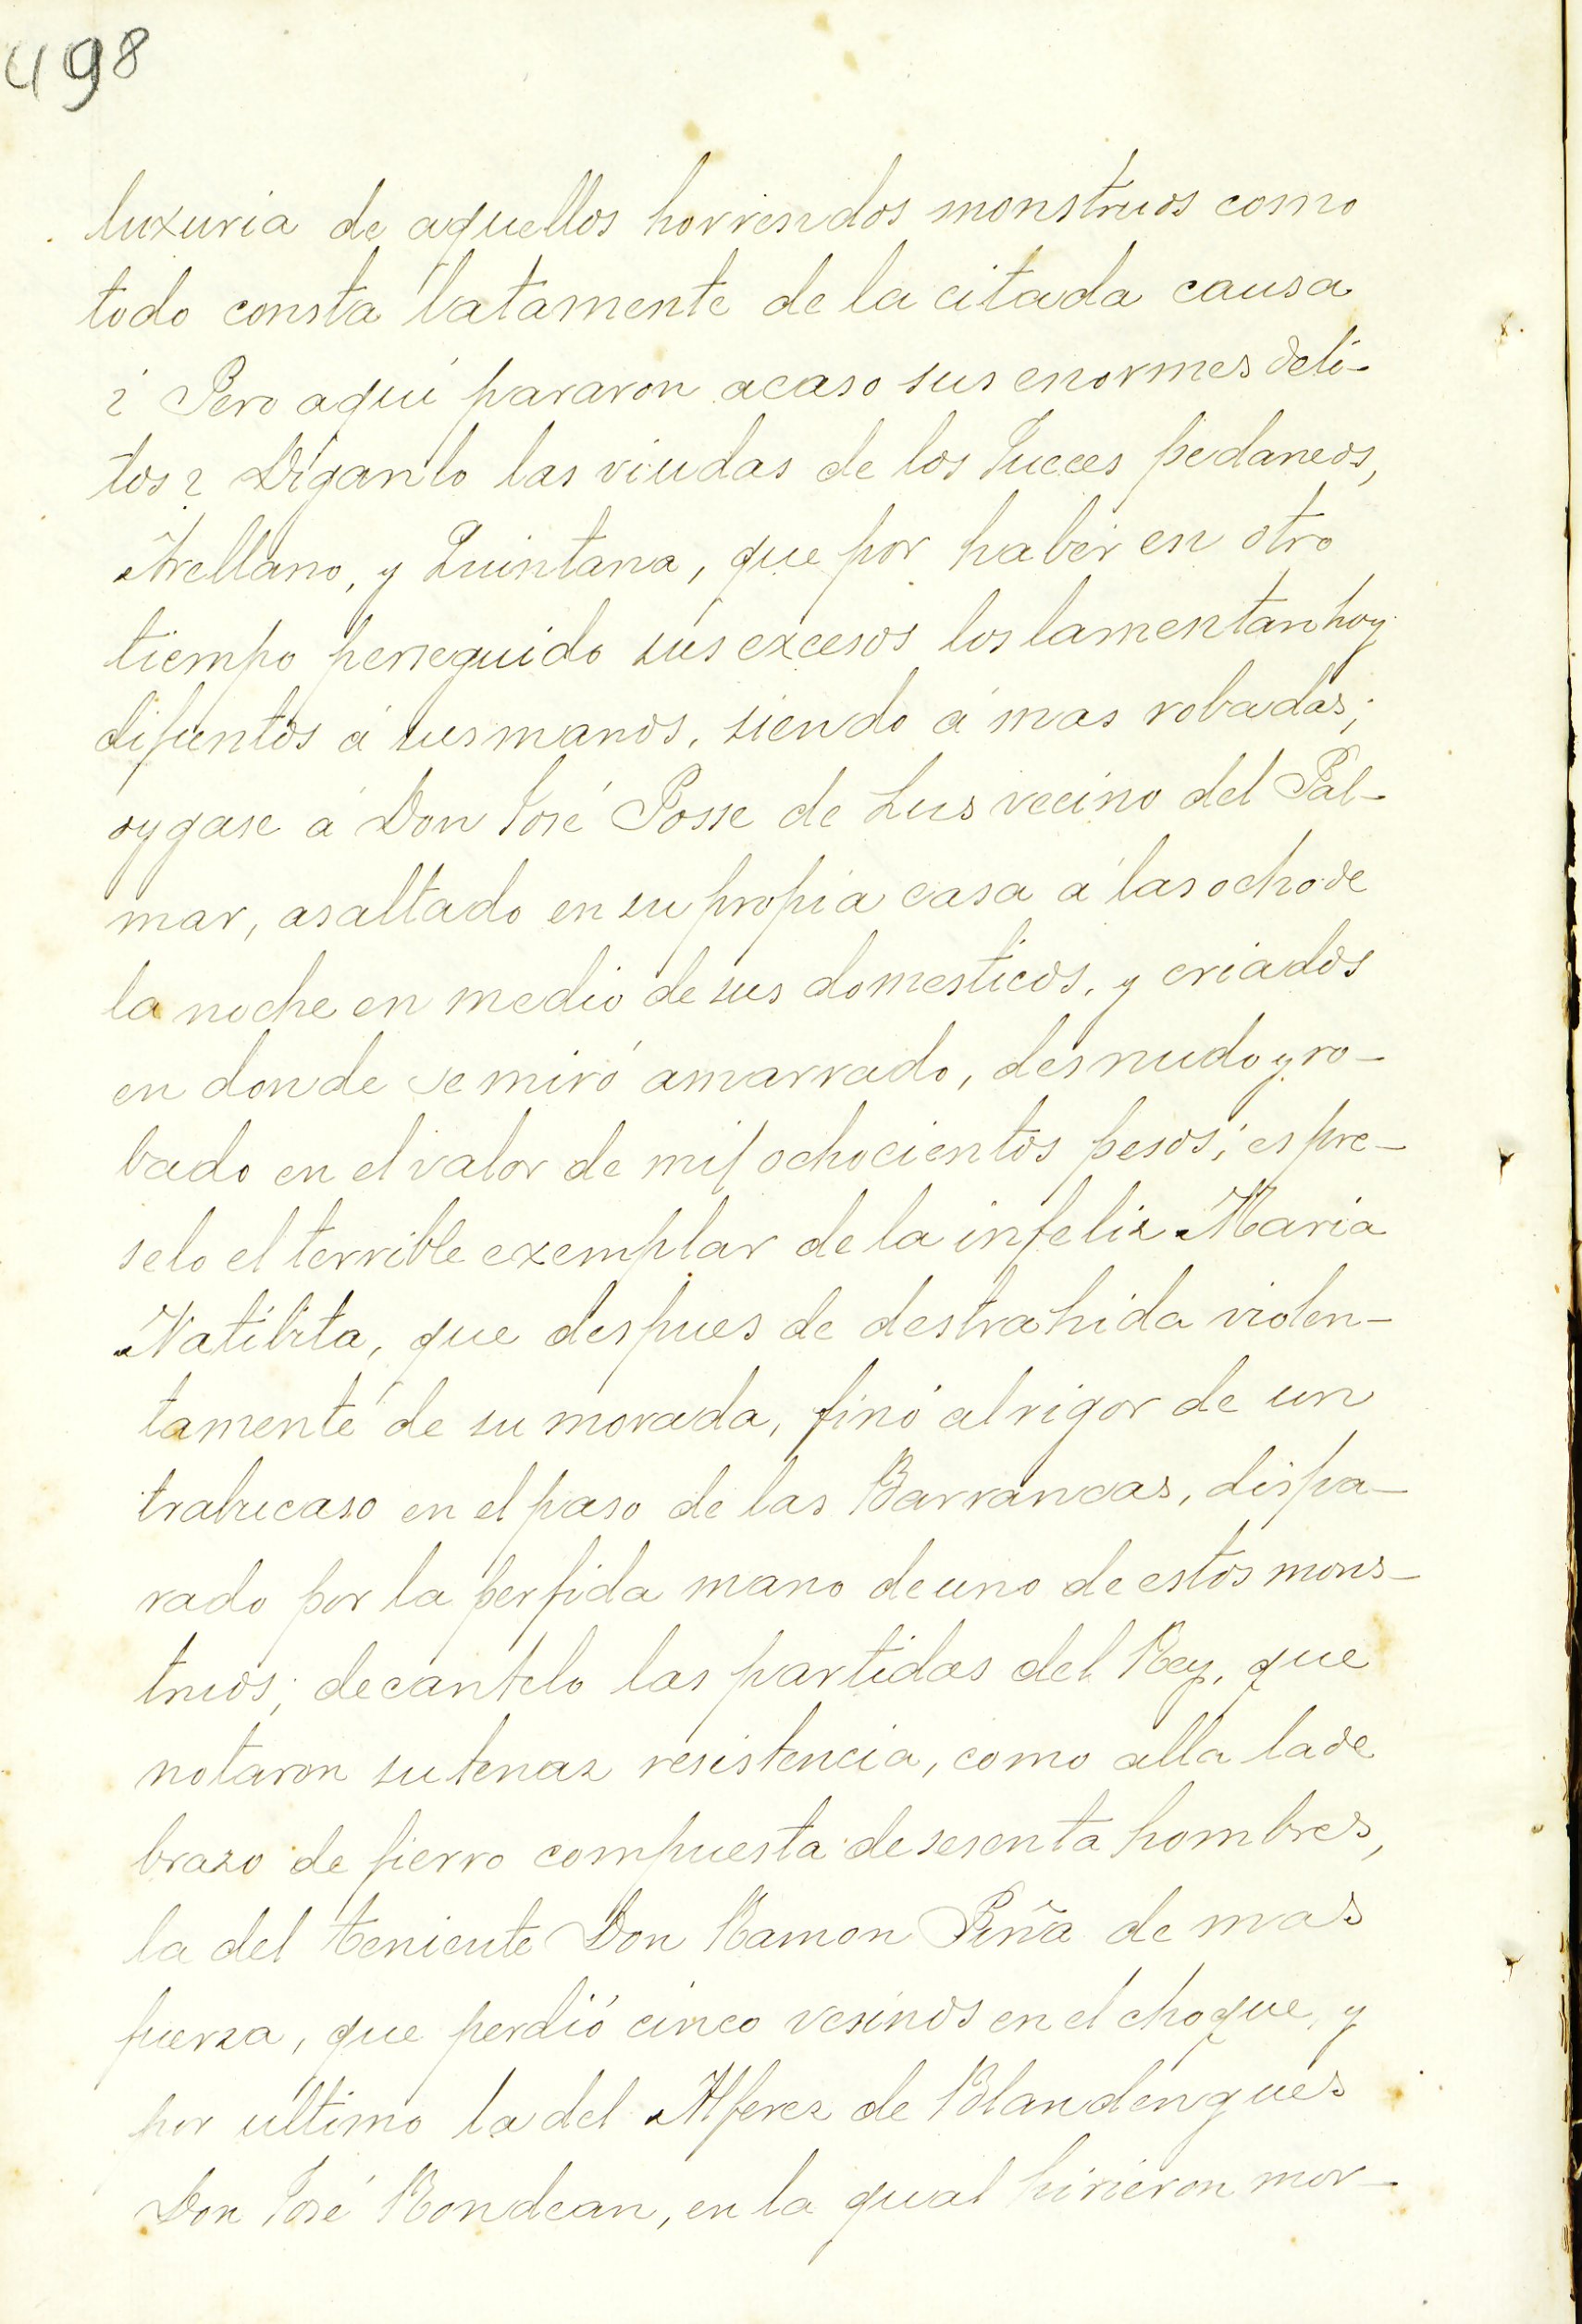 498
luxuria de aquellos horrendos monstruos como
todo consta latamente de la citada causa
¿ Pero aquí pararon acaso sus enormes deli-
tos? Diganlo las viudas de los Jueces pedaneos,
Arellano, y Quintana, que por haber en otro
tiempo perseguido sus excesos los lamentan hoy
difuntos á sus manos, siendo á mas robadas;
oygase á Don José Posse de Lus vecino del Pal-
mar, asaltado en su propia casa á las ocho de
la noche en medio de sus domesticos, y criados
en donde se miró amarrado, desnudo y ro-
bado en el valor de mil ochocientos pesos; espre-
selo el terrible exemplar de la infeliz Maria
Natibita, que despues de destrahida violen-
tamente de su morada, finó al rigor de un
trabucaso en el paso de las Barrancas, dispa-
rado por la perfida mano de uno de estos mons-
truos; decantelo las partidas del Rey, que
notaron su tenaz resistencia, como alla la de
brazo de fierro compuesta de sesenta hombres,
la del teniente Don Ramon Piña de mas
fuerza, que perdió cinco vesinos en el choque, y
por ultimo la del Alferez de Blandengues
Don José Rondeau, en la qual hirieron mor-